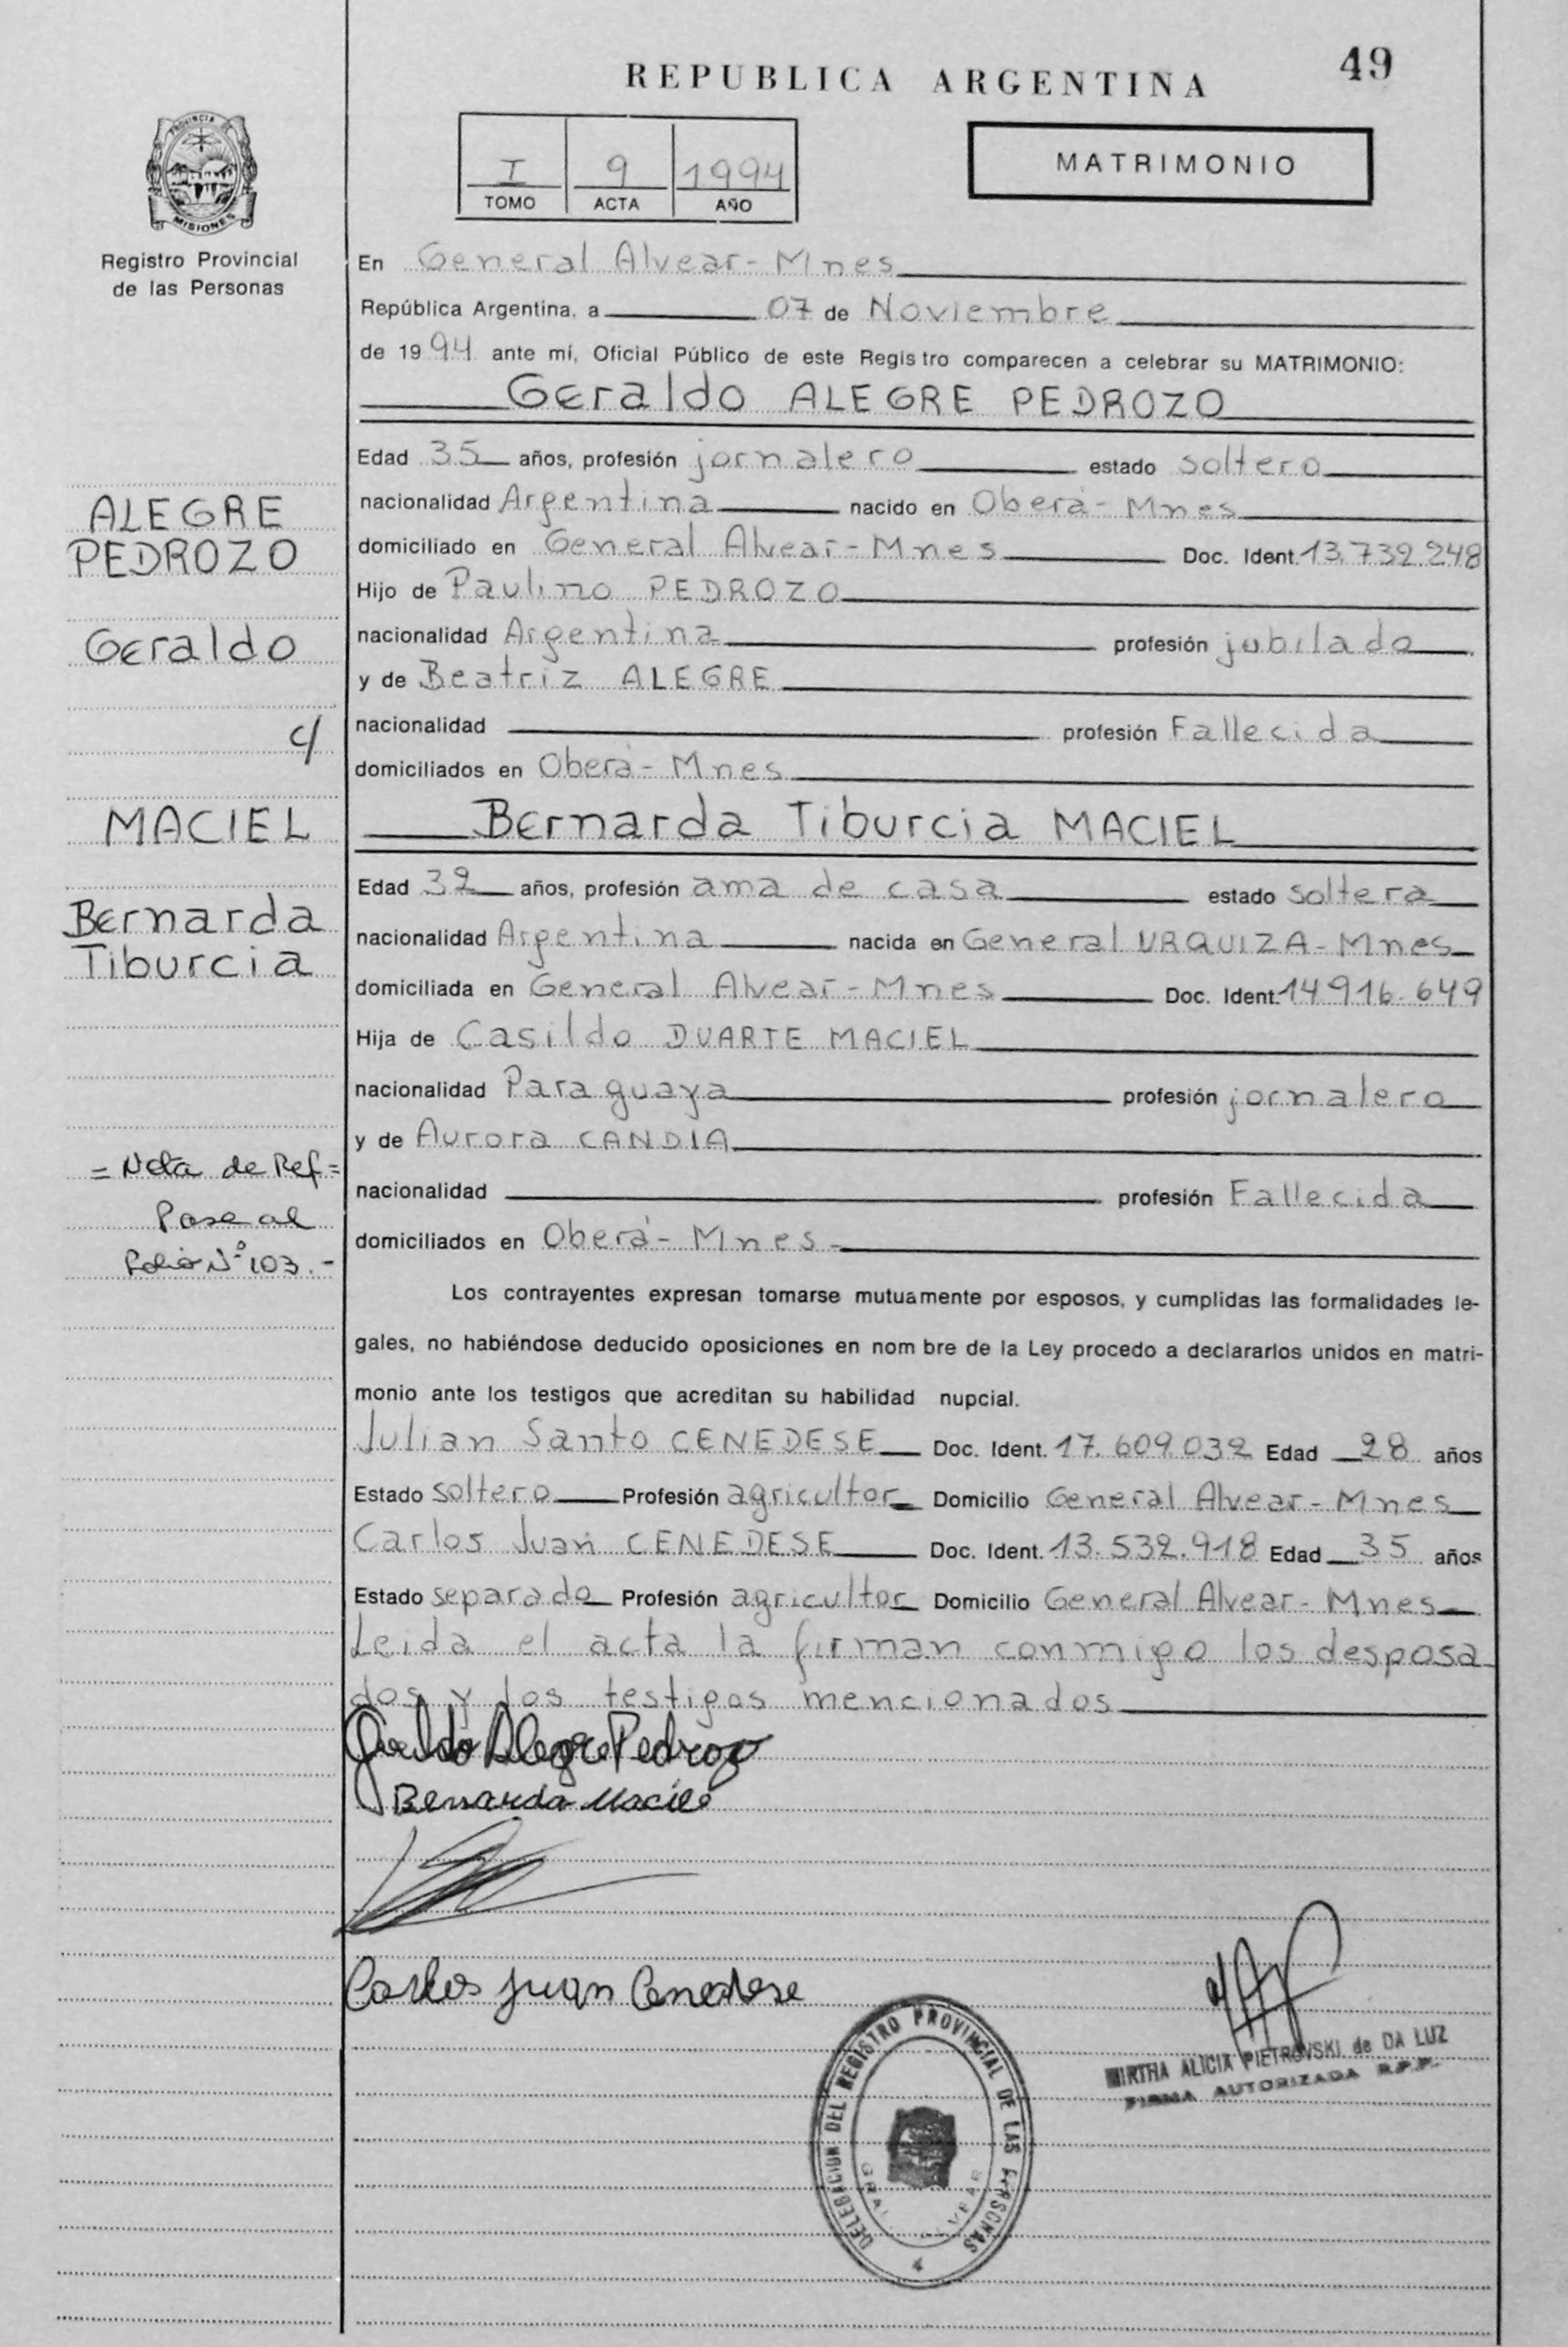 49
REPUBLICA ARGENTINA
I 9 1994
TOMO ACTA AÑO
MATRIMONIO
PROVINCIA DE
MISIONES
Registro Provincial
de las Personas
En General Alvear - Mnes
República Argentina, a 07 de Noviembre
de 1994 ante mí, Oficial Público de este Registro comparecen a celebrar su MATRIMONIO:
Geraldo ALEGRE PEDROZO
Edad 35 años, profesión jornalero estado soltero
nacionalidad Argentina nacido en Oberá - Mnes
domiciliado en General Alvear - Mnes Doc. Ident. 13.732.248
Hijo de Paulino PEDROZO
nacionalidad Argentina profesión jubilado
y de Beatriz ALEGRE
nacionalidad profesión Fallecida
domiciliados en Oberá - Mnes
Bernarda Tiburcia MACIEL
Edad 32 años, profesión ama de casa estado soltera
nacionalidad Argentina nacida en General URQUIZA - Mnes
domiciliada en General Alvear - Mnes Doc. Ident. 14916.649
Hija de Casildo DUARTE MACIEL
nacionalidad Paraguaya profesión jornalero
y de Aurora CANDIA
nacionalidad profesión Fallecida
domiciliados en Oberá - Mnes -
ALEGRE
PEDROZO
Geraldo
c/
MACIEL
Bernarda
Tiburcia
= Nota de Ref =
Pase al
Folio N° 103.-
Los contrayentes expresan tomarse mutuamente por esposos, y cumplidas las formalidades le-
gales, no habiéndose deducido oposiciones en nom bre de la Ley procedo a declararlos unidos en matri-
monio ante los testigos que acreditan su habilidad nupcial.
Julian Santo CENEDESE Doc. Ident. 17.609.032 Edad 28 años
Estado soltero Profesión agricultor Domicilio General Alvear - Mnes
Carlos Juan CENEDESE Doc. Ident. 13.532.918 Edad 35 años
Estado separado Profesión agricultor Domicilio General Alvear - Mnes
Leida el acta la firman conmigo los desposa
dos y los testigos mencionados
Geraldo Alegre Pedrozo
Bernarda Maciel
Carlos Juan Cenedese
MIRTHA ALICIA PIETROVSKI de DA LUZ
FIRMA AUTORIZADA R.P.P.
DELEGACION DEL REGISTRO PROVINCIAL DE LAS PERSONAS
GRAL ALVEAR